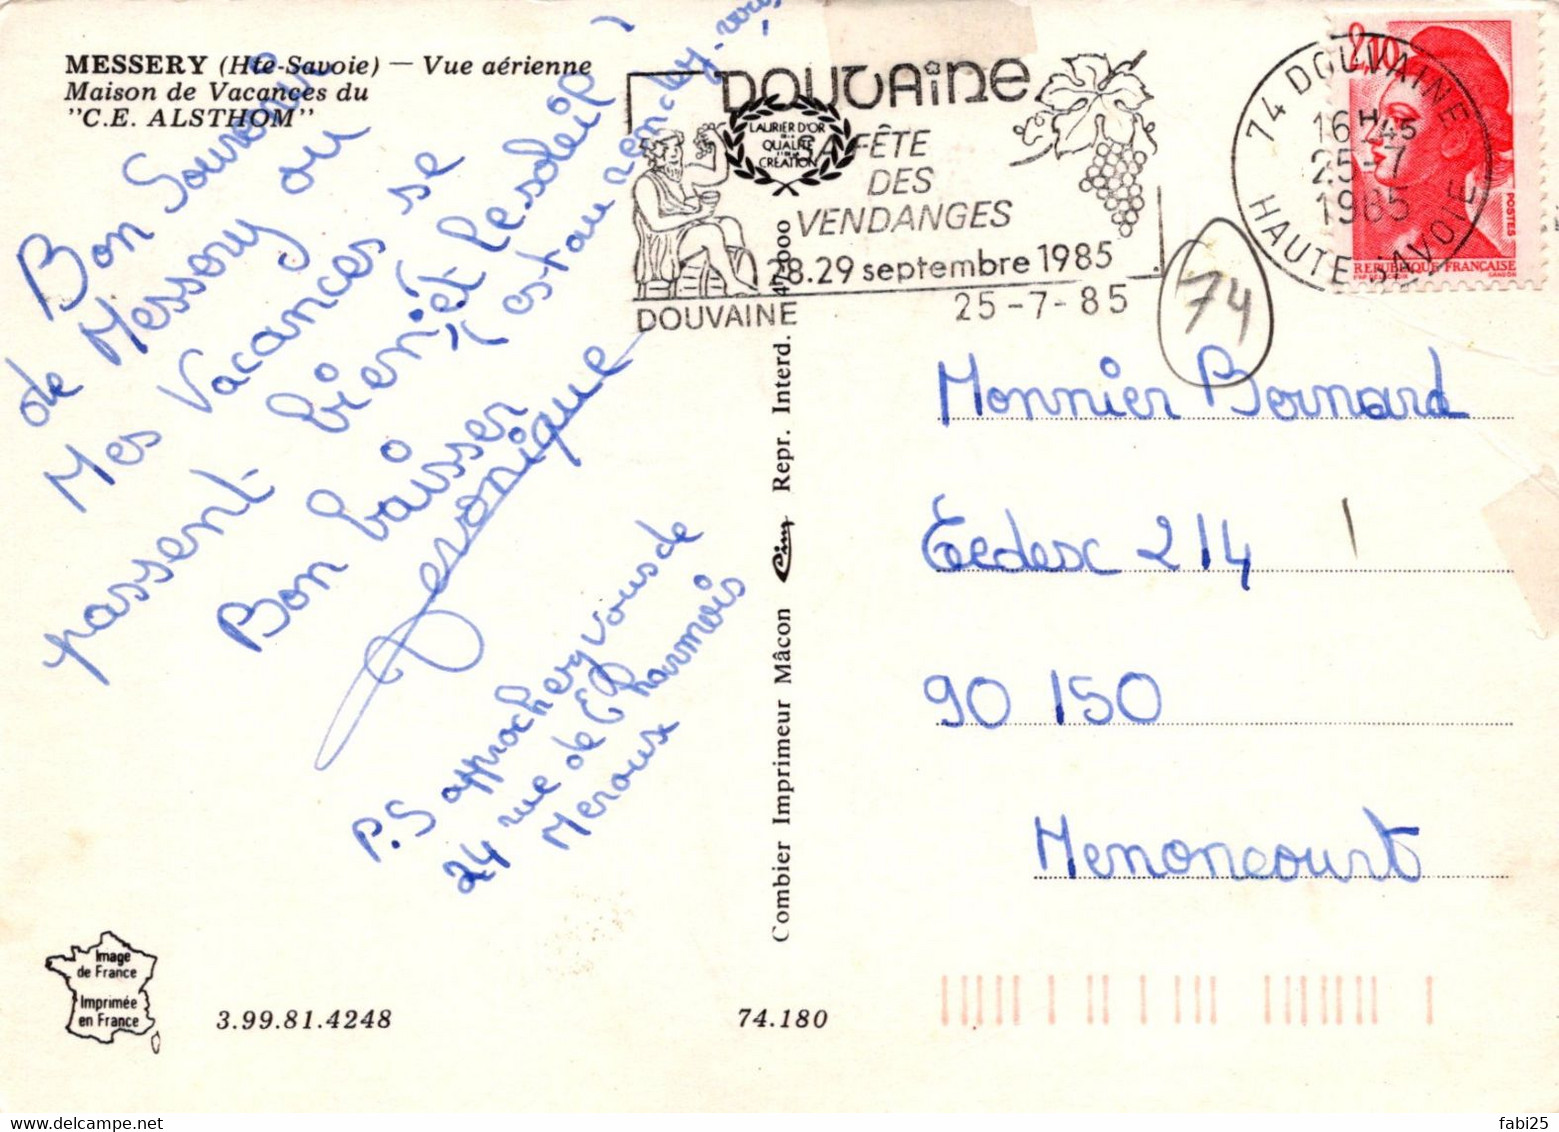 MESSERY (Hte-Savoie) — Vue aérienne
Maison de Vacances du
"C.E. ALSTHOM"
Bon Souvenir
de Messery ou
Mes Vacances se
passent bien, et le soleil
est au rendez-vous,
Bon baiser
Veronique
P.S approchez vous de
24 rue de Charmois
Meroux
Image
de France
Imprimée
en France
3.99.81.4248
74.180
Combier Imprimeur Mâcon Cim Repr. Interd. 472000
DOUVAINE
LAURIER D'OR
DE LA
QUALITÉ
ET DE LA
CRÉATION
SA FÊTE
DES
VENDANGES
28.29 septembre 1985
DOUVAINE
25-7-85
74
74 DOUVAINE
16H45
25-7
1985
HAUTE SAVOIE
2,10
POSTES
REPUBLIQUE FRANÇAISE
GANDON
Monnier Bernard
Eedesc 214
90 150
Menoncourt
fabi25